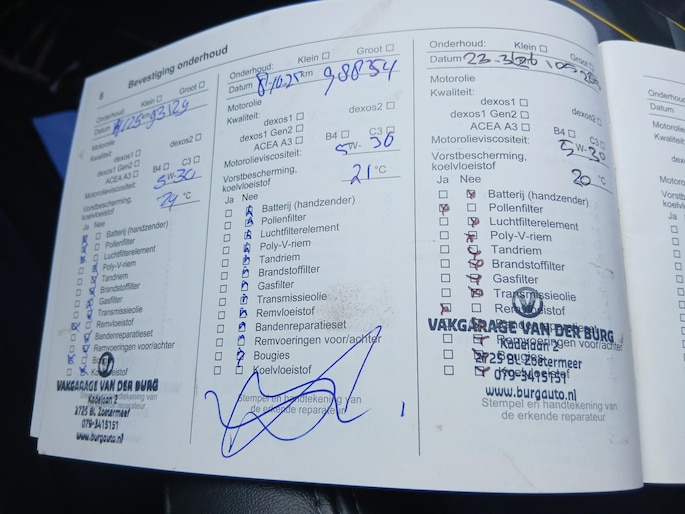 8 Bevestiging onderhoud
Onderhoud: Klein ☐ Groot ☐
Datum km 93129
Motorolie
Kwaliteit: dexos1 ☐ dexos2 ☐
dexos1 Gen2 ☐
ACEA A3 ☐ B4 ☐ C3 ☐
Motorolieviscositeit: 5W-30
Vorstbescherming,
koelvloeistof °C
Ja Nee
Batterij (handzender)
Pollenfilter
Luchtfilterelement
Poly-V-riem
Tandriem
Brandstoffilter
Gasfilter
Transmissieolie
Remvloeistof
Bandenreparatieset
Remvoeringen voor/achter
VAKGARAGE VAN DER BURG
Kadelaan 2
2725 BL Zoetermeer
079-3415151
www.burgauto.nl
Onderhoud: Klein ☐ Groot ☐
Datum 8-10-25 km 98854
Motorolie
Kwaliteit:
dexos1 ☐ dexos2 ☐
dexos1 Gen2 ☐
ACEA A3 ☐ B4 ☐ C3 ☐
Motorolieviscositeit: 5W-30
Vorstbescherming,
koelvloeistof 21 °C
Ja Nee
Batterij (handzender)
Pollenfilter
Luchtfilterelement
Poly-V-riem
Tandriem
Brandstoffilter
Gasfilter
Transmissieolie
Remvloeistof
Bandenreparatieset
Remvoeringen voor/achter
Bougies
Koelvloeistof
Stempel en handtekening van
de erkende reparateur
Onderhoud: Klein ☐ Groot ☐
Datum
Motorolie
Kwaliteit:
dexos1 ☐ dexos2 ☐
dexos1 Gen2 ☐
ACEA A3 ☐ B4 ☐ C3 ☐
Motorolieviscositeit: 5W-30
Vorstbescherming,
koelvloeistof 20 °C
Ja Nee
Batterij (handzender)
Pollenfilter
Luchtfilterelement
Poly-V-riem
Tandriem
Brandstoffilter
Gasfilter
Transmissieolie
Remvloeistof
VAKGARAGE VAN DER BURG
Remvoeringen voor/achter
Kadelaan 2
Bougies
2725 BL Zoetermeer
Koelvloeistof
079-3415151
www.burgauto.nl
Stempel en handtekening van
de erkende reparateur
Onderhoud:
Datum
Motorolie